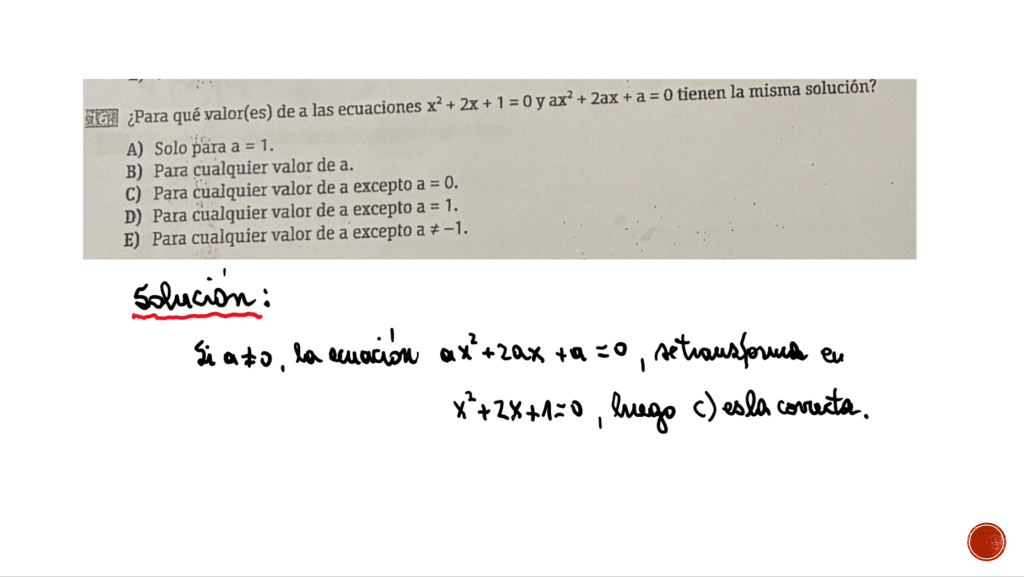 ¿Para qué valor(es) de a las ecuaciones x² + 2x + 1 = 0 y ax² + 2ax + a = 0 tienen la misma solución?
A) Solo para a = 1.
B) Para cualquier valor de a.
C) Para cualquier valor de a excepto a = 0.
D) Para cualquier valor de a excepto a = 1.
E) Para cualquier valor de a excepto a ≠ −1.
Solución:
Si a≠0, la ecuación ax²+2ax+a=0, se transforma en
x²+2x+1=0, luego c) es la correcta.